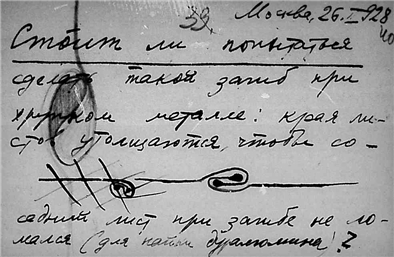 33. Москва, 26.I.928
40
Стоит ли попытаться
сделать такой загиб при
хрупком металле: края ли-
стов утолщаются, чтобы со-
седний лист при загибе не ло-
мался (для нашего дуралюмина)?